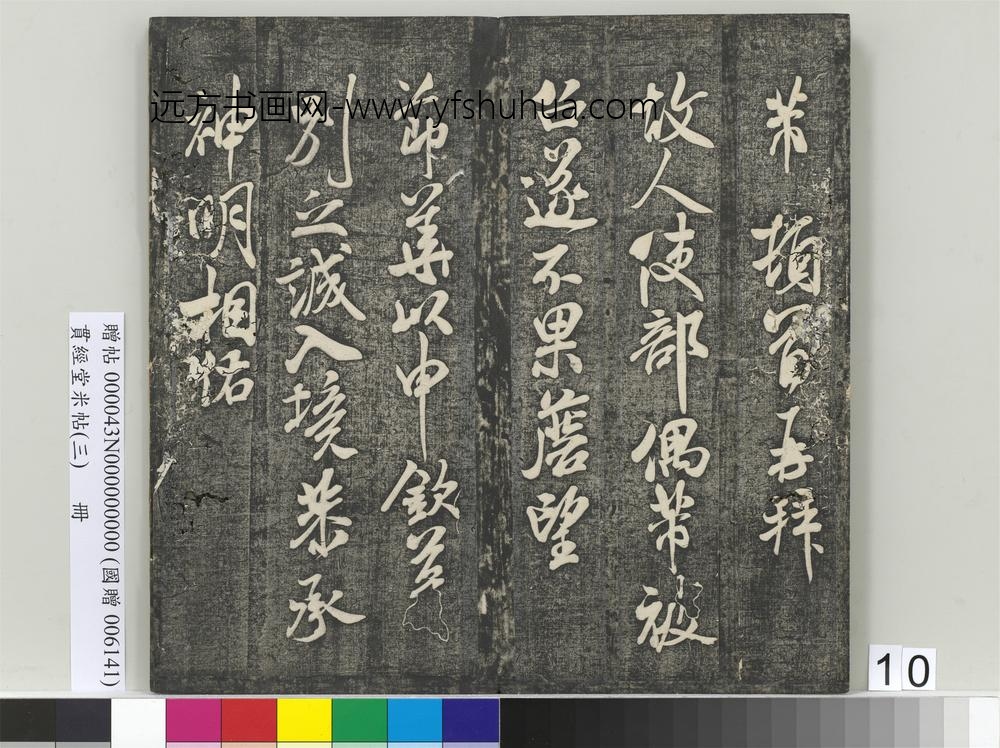 芾頓首再拜
故人使部偶芾被
召遂不果詹望
節華以申欽芾
別之誠入境恭承
神明相祐
远方书画网-www.yfshuhua.com
贈帖 000043N000000000 (國贈 006141)
貫經堂米帖(三) 冊
10